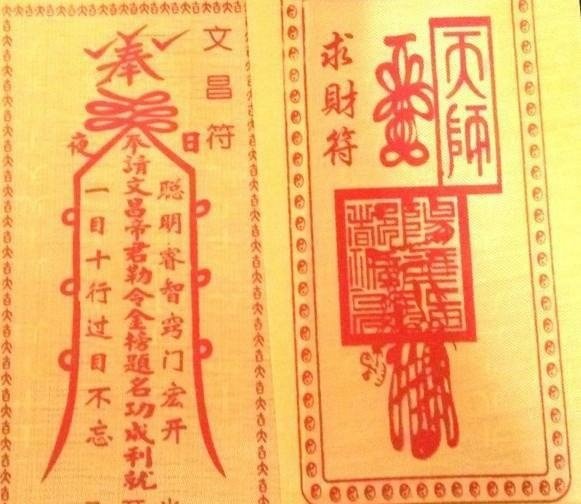 文昌符
奉
日
夜
聪明睿智窍门宏开
奉請文昌帝君勒令金榜題名功成利就
一目十行过目不忘
天師
求財符